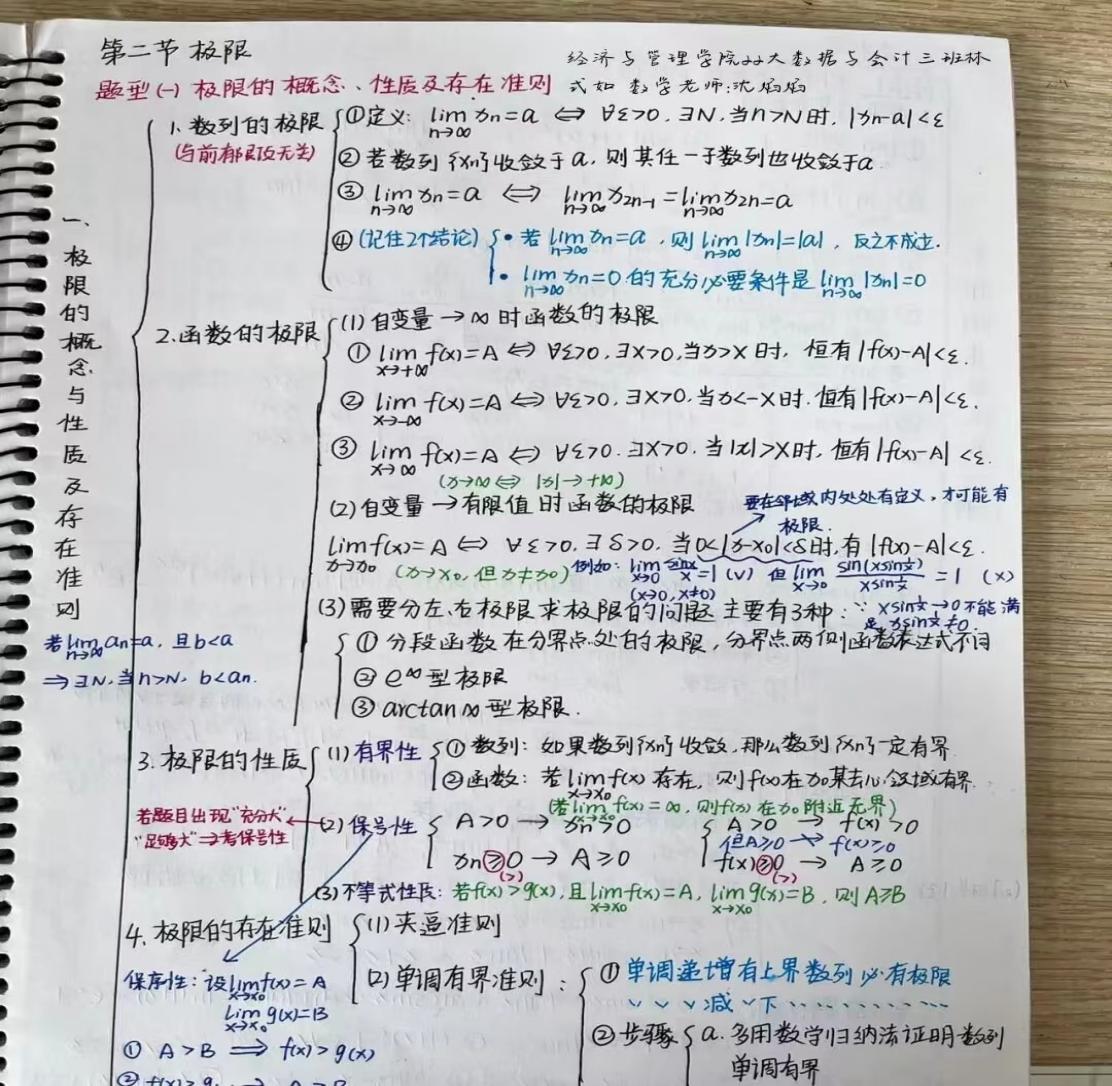 第二节 极限
经济与管理学院22大数据与会计三班林
式如 数学老师:沈焰焰
题型(一) 极限的概念、性质及存在准则
一、极限的概念与性质及存在准则
1. 数列的极限
(与前有限项无关)
①定义: lim(n→∞) xn=a ⇔ ∀ε>0, ∃N, 当n>N时, |xn-a|<ε
② 若数列{xn}收敛于a, 则其任一子数列也收敛于a.
③ lim(n→∞) xn=a ⇔ lim(n→∞) x2n-1=lim(n→∞) x2n=a
④ (记住2个结论) • 若 lim(n→∞) xn=a, 则 lim(n→∞) |xn|=|a|, 反之不成立.
• lim(n→∞) xn=0 的充分必要条件是 lim(n→∞) |xn|=0
2. 函数的极限
(1) 自变量→∞时函数的极限
① lim(x→+∞) f(x)=A ⇔ ∀ε>0, ∃X>0, 当x>X时, 恒有|f(x)-A|<ε.
② lim(x→-∞) f(x)=A ⇔ ∀ε>0, ∃X>0, 当x<-X时, 恒有|f(x)-A|<ε.
③ lim(x→∞) f(x)=A ⇔ ∀ε>0, ∃X>0, 当|x|>X时, 恒有|f(x)-A|<ε.
(x→∞ ⇔ |x|→+∞)
(2) 自变量→有限值时函数的极限
要在邻域内处处有定义, 才可能有
极限.
lim(x→x0) f(x)=A ⇔ ∀ε>0, ∃δ>0, 当0<|x-x0|<δ时, 有|f(x)-A|<ε.
(x→x0, 但x≠x0) 例如: lim(x→0) sinx/x=1 (√) 但 lim(x→0) sin(xsin1/x)/xsin1/x=1 (×)
(x→0, x≠0)
(3) 需要分左、右极限求极限的问题主要有3种: ∵ xsin1/x→0不能满
足 xsin1/x≠0.
① 分段函数在分界点处的极限, 分界点两侧函数表达式不同
② e^∞型极限
③ arctan∞型极限.
若lim(n→∞) an=a, 且b<a
⇒ ∃N, 当n>N, b<an.
3. 极限的性质
(1) 有界性
① 数列: 如果数列{xn}收敛, 那么数列{xn}一定有界.
② 函数: 若lim(x→x0) f(x)存在, 则f(x)在x0某去心邻域有界.
(若lim(x→x0) f(x)=∞, 则f(x)在x0附近无界)
若题目出现"充分大"
"足够大"→考保号性
(2) 保号性
A>0 → xn>0
xn≥0 → A≥0
(>)
A>0 → f(x)>0
但A≥0 ↛ f(x)≥0
f(x)≥0 → A≥0
(>)
(3) 不等式性质: 若f(x)>g(x), 且lim(x→x0) f(x)=A, lim(x→x0) g(x)=B, 则A≥B
4. 极限的存在准则
(1) 夹逼准则
(2) 单调有界准则:
① 单调递增有上界数列必有极限
〃 〃 〃 减 〃 下 〃 〃 〃 〃 〃 〃
② 步骤 a. 多用数学归纳法证明数列
单调有界
保序性: 设lim(x→x0) f(x)=A
lim(x→x0) g(x)=B
① A>B ⇒ f(x)>g(x)